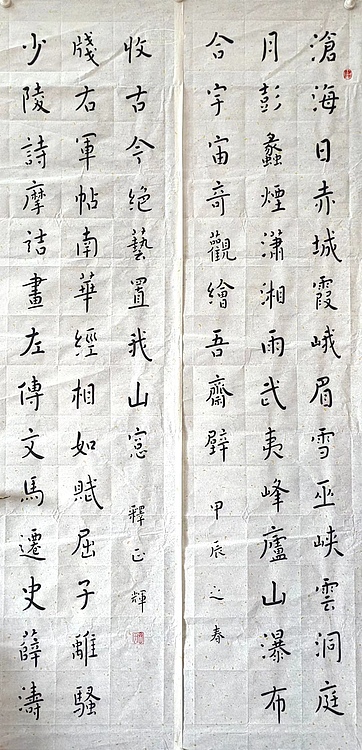 滄海日赤城霞峨眉雪巫峽雲洞庭
月彭蠡煙瀟湘雨武夷峰廬山瀑布
合宇宙竒觀繪吾齋壁
甲辰之春
少陵詩摩詰畫左傳文馬遷史薛濤
牋右軍帖南華經相如賦屈子離騷
收古今絕藝置我山窓
釋正輝